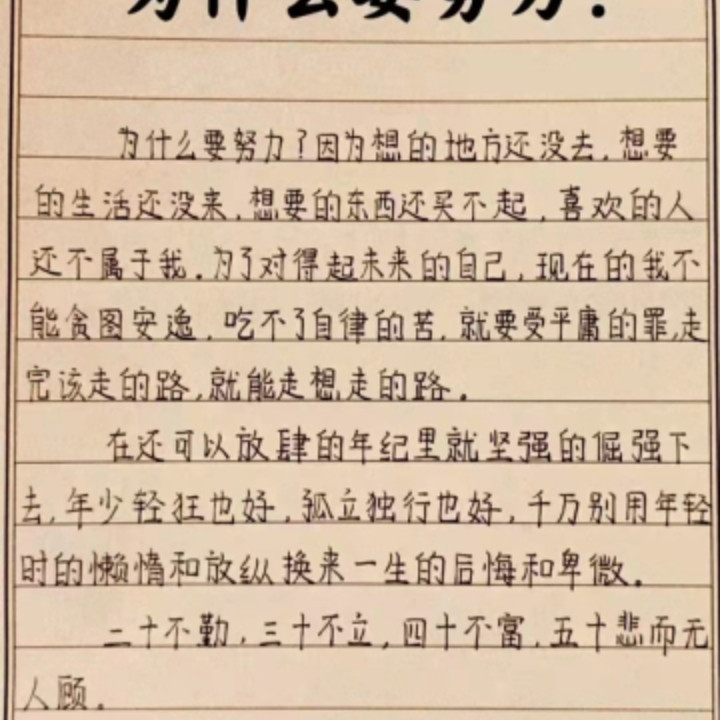 为什么要努力?
为什么要努力?因为想的地方还没去,想要
的生活还没来,想要的东西还买不起,喜欢的人
还不属于我。为了对得起未来的自己,现在的我不
能贪图安逸,吃不了自律的苦,就要受平庸的罪,走
完该走的路,就能走想走的路。
在还可以放肆的年纪里就坚强的倔强下
去,年少轻狂也好,孤立独行也好,千万别用年轻
时的懒惰和放纵换来一生的后悔和卑微。
二十不勤,三十不立,四十不富,五十悲而无
人顾。